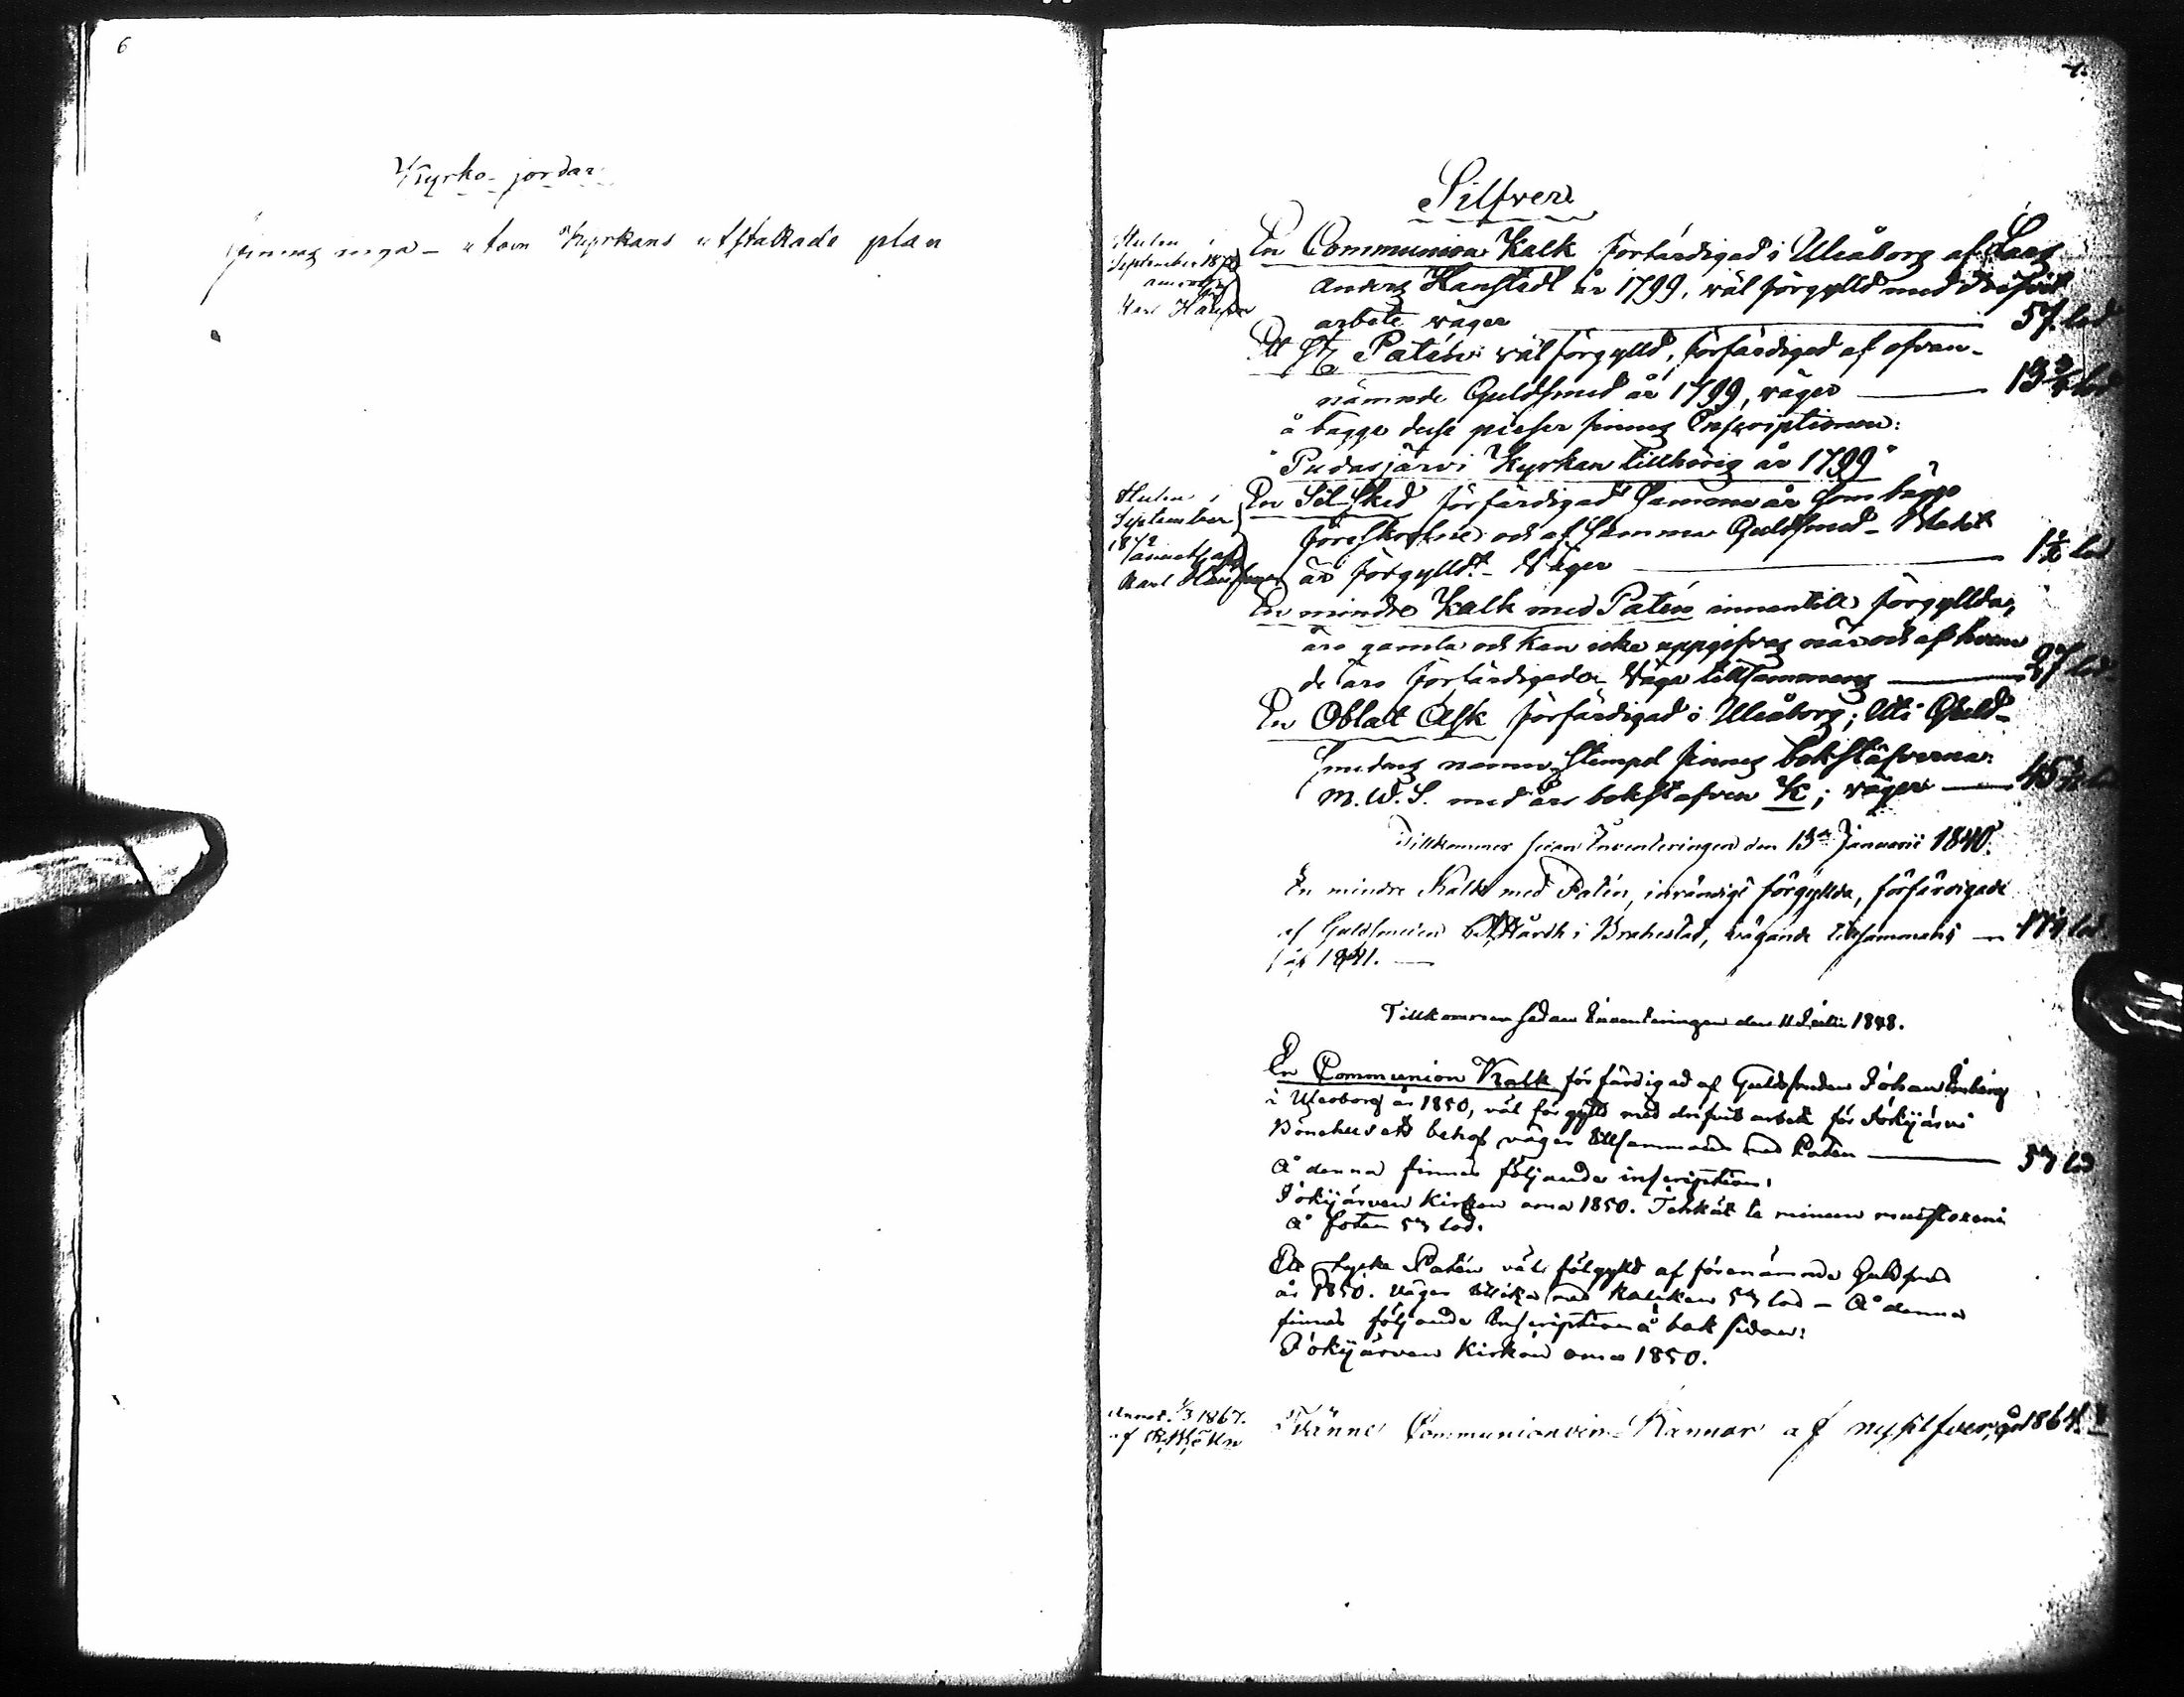 6
Kyrko-jordar
finnas inga - utom Kyrkans utstakade plan
7.
Silfver
Stulen i
September 1872
annot. af
Karl Hanssen
En Communion Kalk förfärdigad i Uleåborg af
Anders Hanstedt år 1799, väl förgylld med drifvit
arbete väger 57 lod
Ett st. Patén väl förgylld, förfärdigad af ofvan-
nämnde Guldsmed år 1799, väger 13 3/4 lod
å bägge dese pieser finnes Inscriptionen:
"Pudasjärvi Kyrkan tillhörig år 1799"
Stulen i
September
1872
annot. af
Karl Hanssen
En Sil Sked förfärdigad samma år som bägge
föreskrifne och af samma Guldsmed - Bladet
är förgylldt - Väger 1 1/2 lod
En mindre Kalk med Patén innantill förgyllda,
äro gamla och kan icke uppgifvas när och af hvem
de äro förfärdigade. Väga tillsammans 27 lod
En Oblat Ask förfärdigad i Uleåborg; Uti Guld-
smedens namn stempel finnes bokstäfverna
M.W.S. med års bokstafven K; väger 45 1/2 lod
Tillkommer sedan Inventeringen den 13de Januarii 1840.
En mindre Kalk med Patén, invändigt förgyllda, förfärdigade
af Guldsmeden Hårdh i Brahestad, vägande tillsammans lod
år 1841.
Tillkommen sedan Inventeringen den 11 Julii 1848.
En Communion Kalk förfärdigad af Guldsmeden Johan
i Uleåborg år 1850, väl förgylld med drifvit arbete för Jokijärvi
Bönehusets behof väger tillsammans med Patén 57 lod
Å denna finnes följande inscription:
Jokijärven Kirkon oma 1850. Tehkät te minun muistoxeni
å foten 57 lod.
Ett stycke Patén väl förgylld af förenämnde Guldsmed
år 1850. Väger med kalken 57 lod - Å denna
finnes följande Inscription å bak sidan:
Jokijärven Kirkon oma 1850.
Annot. 1/3 1867.
af
Tvänne Communionvin-Kannor af nysilfver, år 1864.